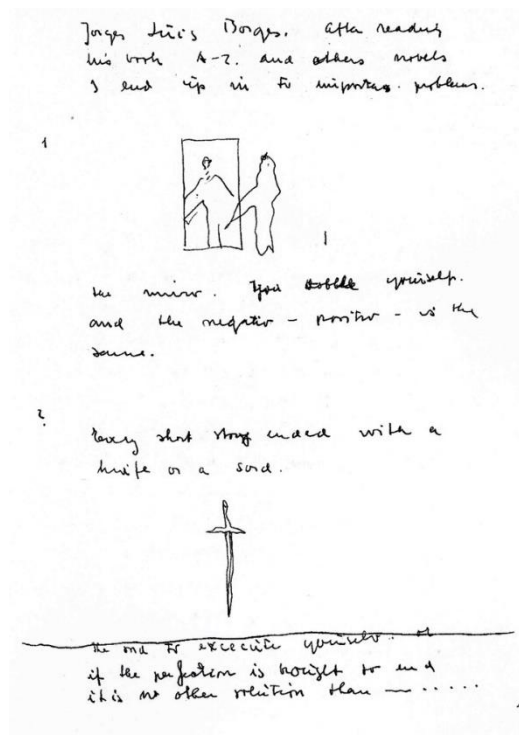 Jorges Luis Borges. after reading
his work A-Z. and others novels
I end up in to importas. problems.
1
the mirror. You yourself.
and the negativ - positiv - is the
same.
2
Every short story ended with a
knife or a sord.
the end to excecute yourself. or
if the perfection is brought to end
it is no other solution than — . . . . .